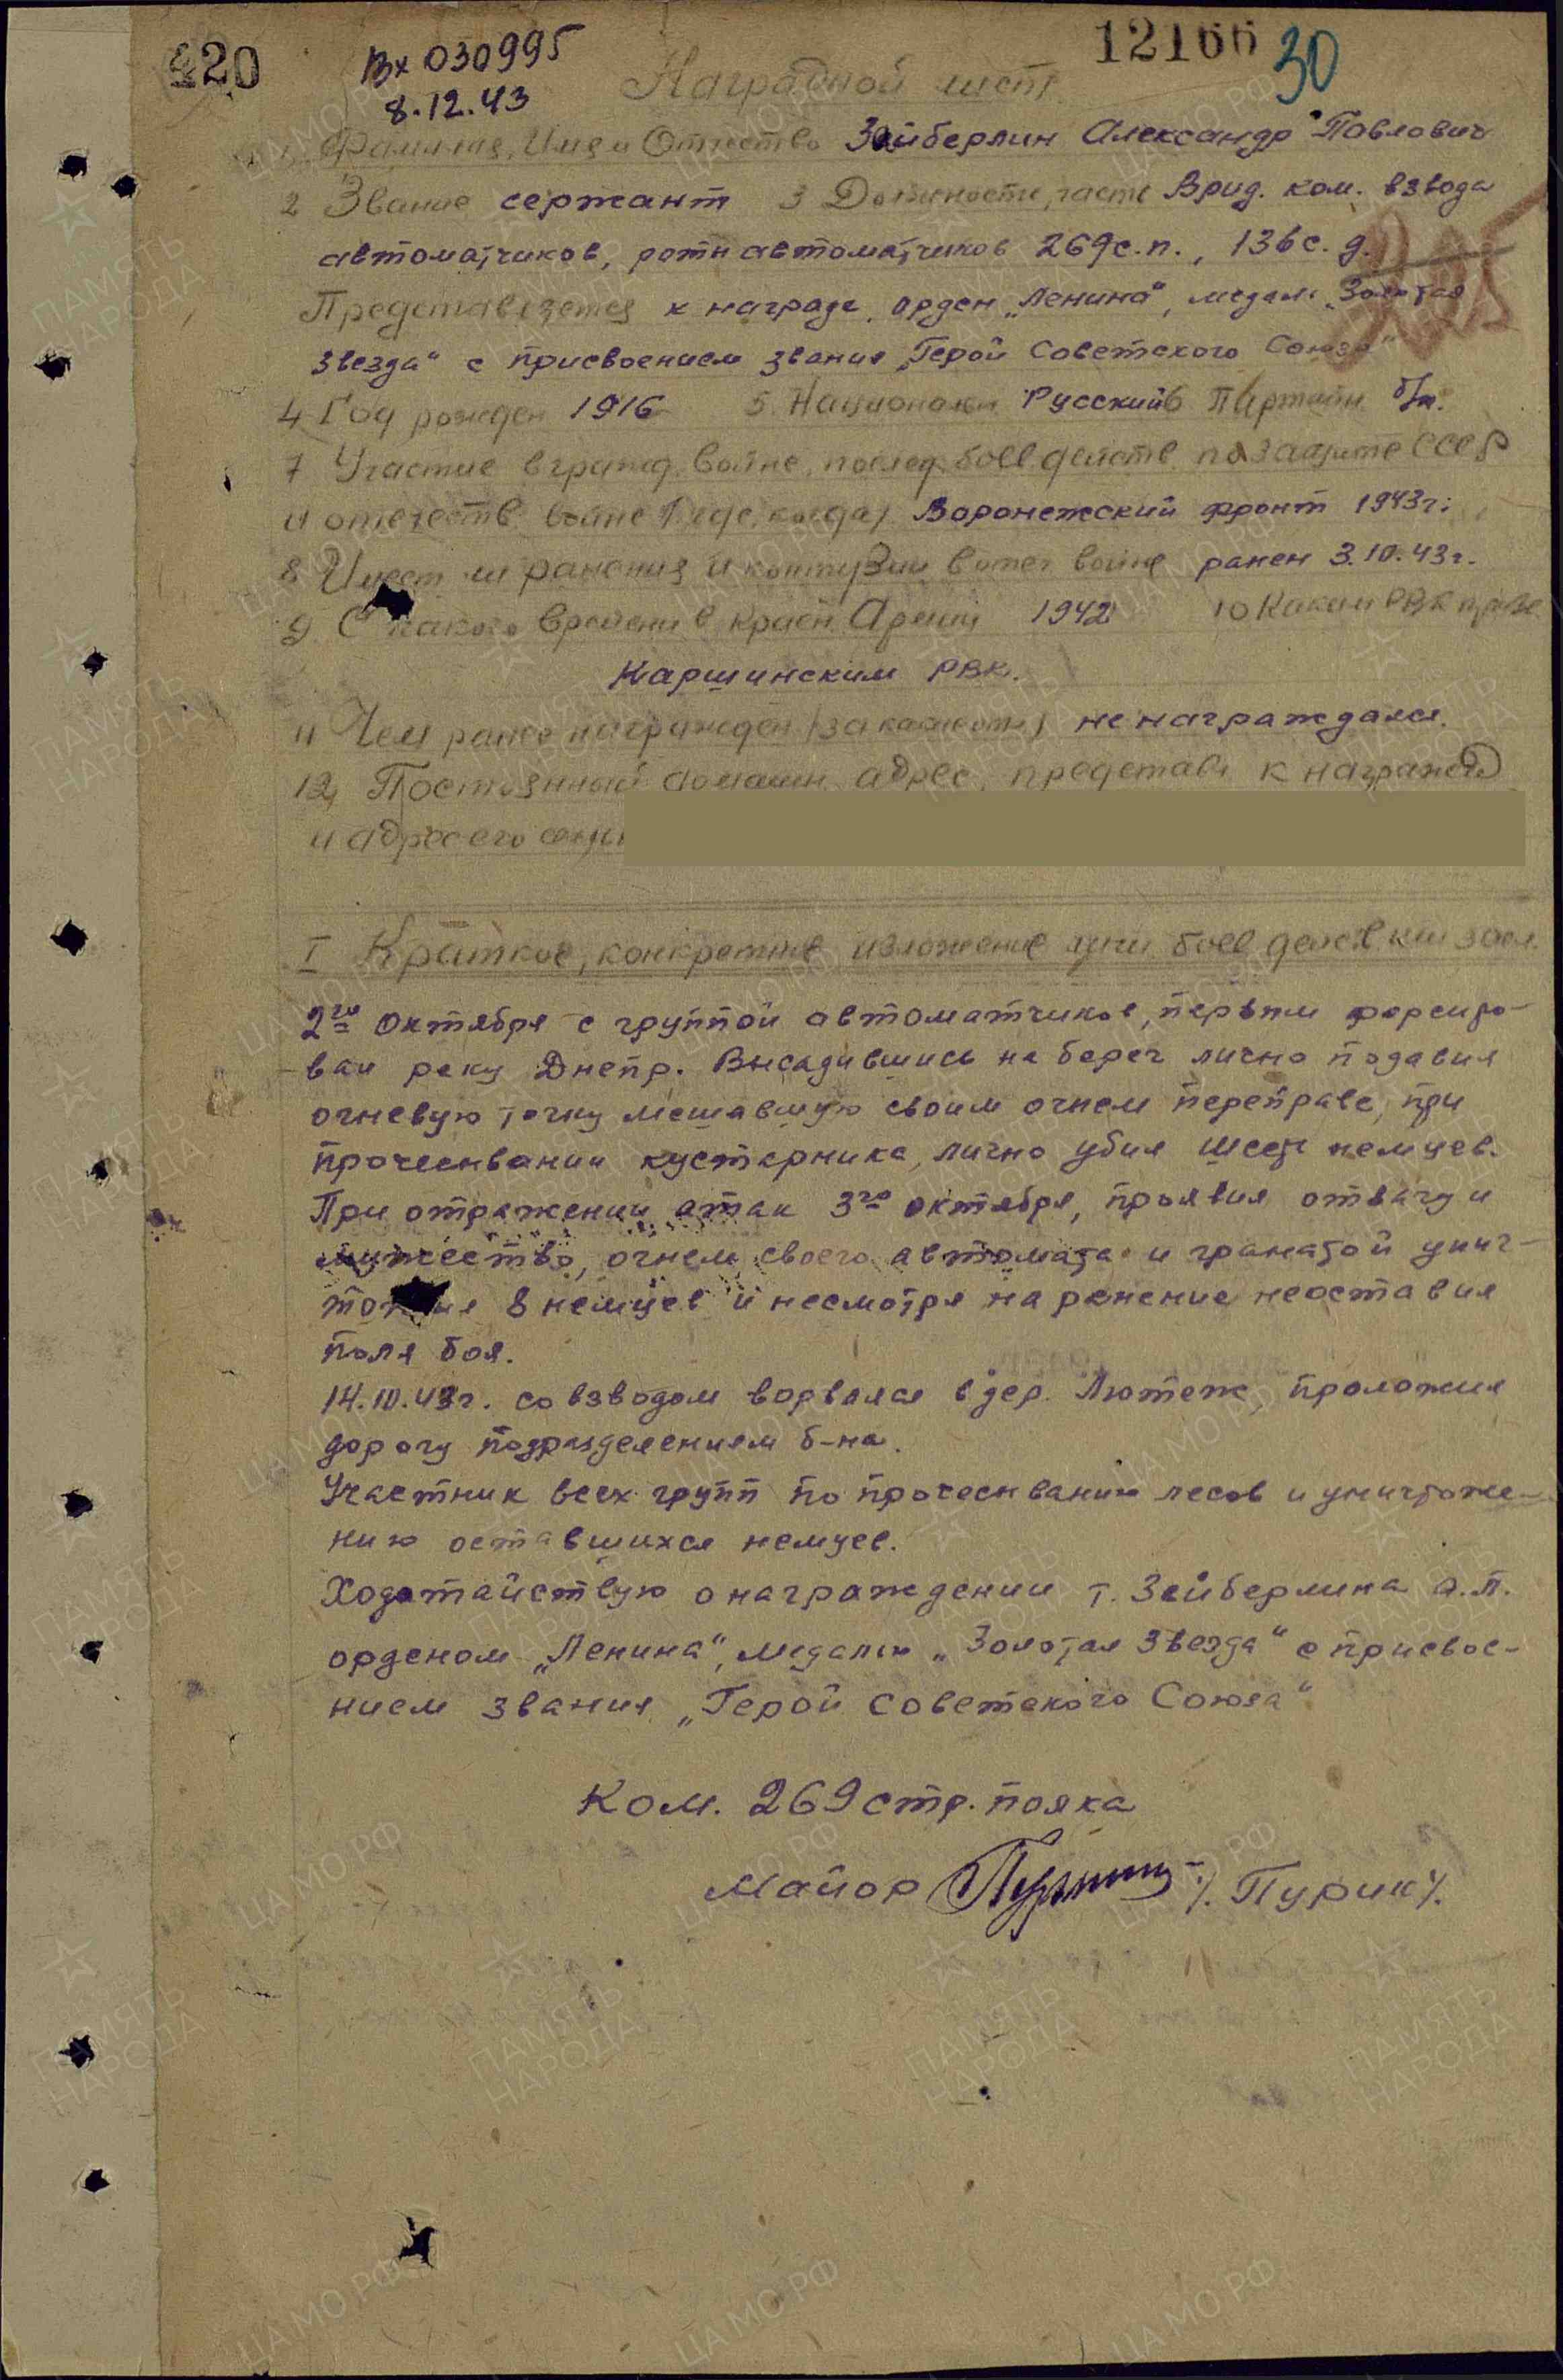 420
Вх 030995
8.12.43
12166
30
Наградной лист
1. Фамилия, Имя и Отчество Зейберлин Александр Павлович
2 Звание сержант 3 Должность, часть Врид. ком. взвода
автоматчиков, роты автоматчиков 269 с.п., 136 с. д.
Представляется к награде орден „Ленина", медаль „Золотая
Звезда" с присвоением звания „Герой Советского Союза"
4 Год рожден 1916 5. Националн Русский 6 Партийн б/п.
7 Участие в гражд. войне, послед. боев. действ. по защите СССР
и отечеств. войне (где, когда) Воронежский фронт 1943г.
8 Имеет ли ранения и контузии в отеч войне ранен 3.10.43г.
9 С какого времени в Красн Армии 1942 10 Каким РВК призв
Каршинским РВК.
11 Чем ранее награжден (за какие отл) не награждался.
12, Постоянный домашн. адрес представл к награжд
и адрес его семьи
I Краткое, конкретное изложение личн боев.
2го октября с группой автоматчиков, первым форсиро-
вал реку Днепр. Высадившись на берег лично подавил
огневую точку мешавшую своим огнем переправе, при
прочесывании кустарника, лично убил шесть немцев.
При отражении атак 3го октября, проявил отвагу и
мужество, огнем своего автомата и гранатой унич-
тожил 8 немцев и несмотря на ранение неоставил
поля боя.
14.10.43г. со взводом ворвался в дер. Лютеж, проложил
дорогу подразделениям б-на.
Участник всех групп по прочесыванию лесов и уничтоже-
нию оставшихся немцев.
Ходатайствую о награждении т. Зейберлина А.П.
орденом „Ленина", медалью „Золотая Звезда" с присвое-
нием звания „Герой Советского Союза"
Ком. 269 стр. полка
Майор /. Пурик /.
ЦА МО РФ
ПАМЯТЬ
НАРОДА